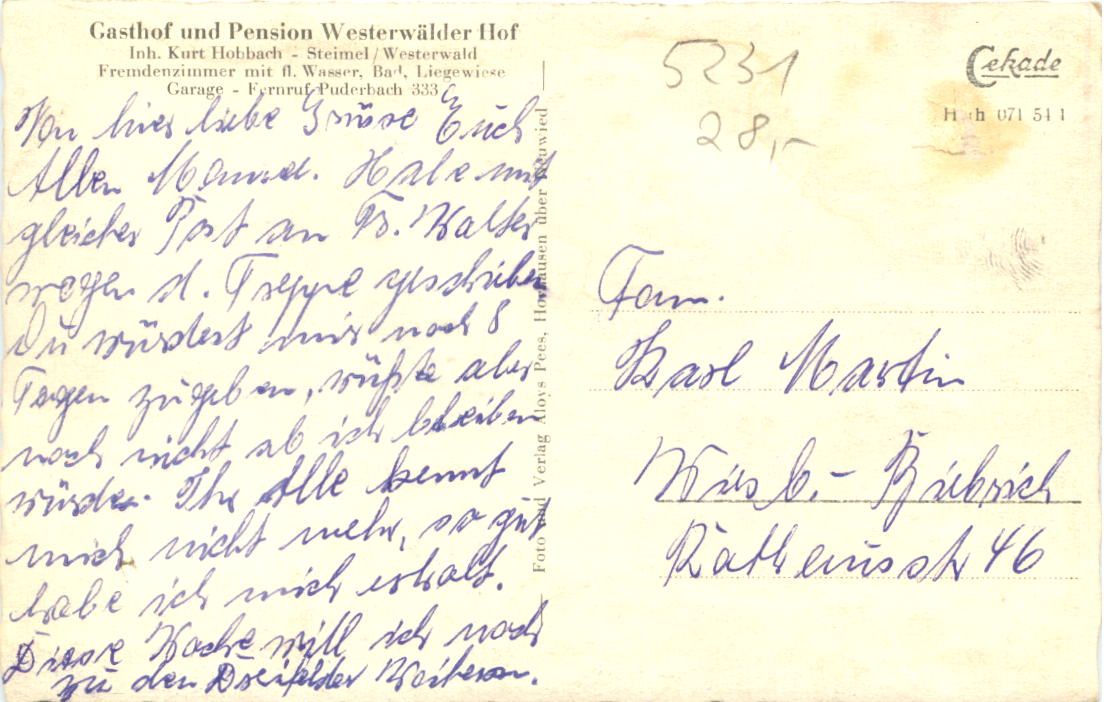 Gasthof und Pension Westerwälder Hof
Inh. Kurt Hobbach - Steimel/Westerwald
Fremdenzimmer mit fl. Wasser, Bad, Liegewiese
Garage - Fernruf Puderbach 333
Von hier liebe Grüsse Euch
Allen Mama. Habe mit
gleicher Post an Fr. Walter
wegen d. Treppe geschrieben
Du würdest mir nach 8
Tagen zugeben, wüßte aber
noch nicht ob ich bleiben
würde. Ihr Alle kennt
mich nicht mehr, so gut
habe ich mich erholt.
Diese Woche will ich noch
zu den Dreifelder Weihern.
Foto und Verlag Aloys Pees, Horhausen über Neuwied
5231
28,-
Cekade
071 54 1
Fam.
Karl Martin
Wiesb.- Biebrich
Rathausstr 46